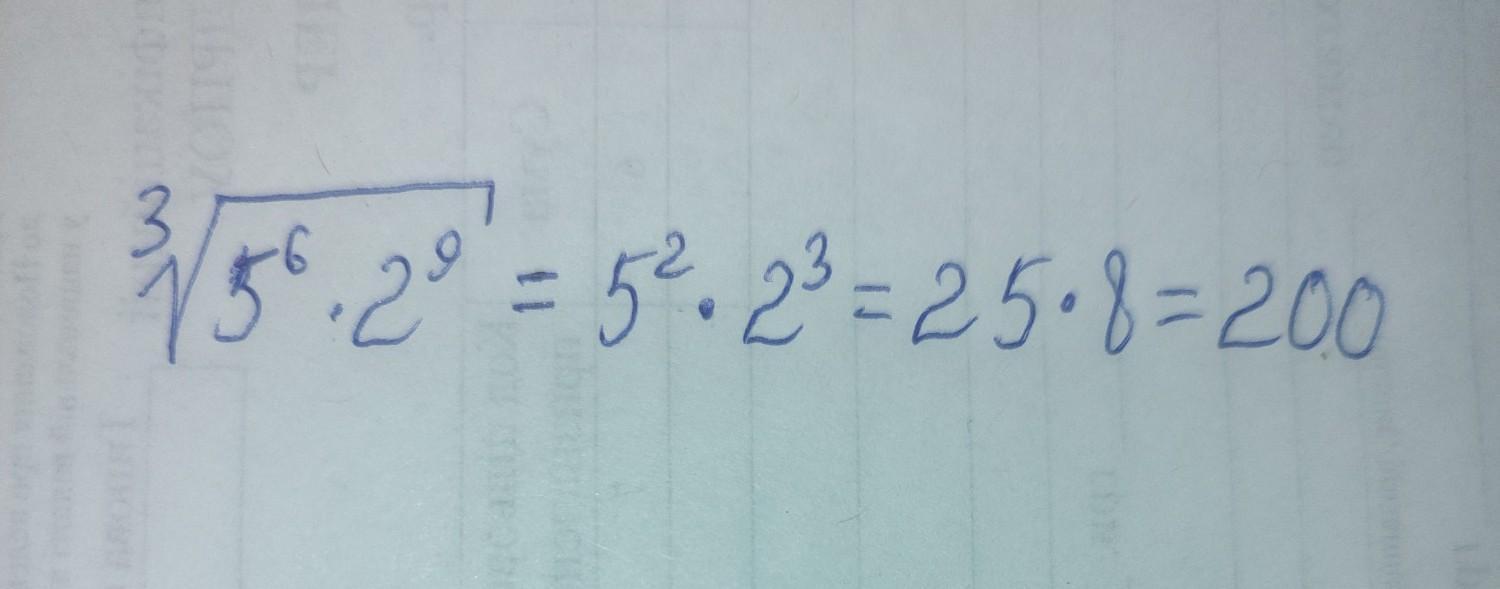 ∛(5⁶ · 2⁹) = 5² · 2³ = 25 · 8 = 200